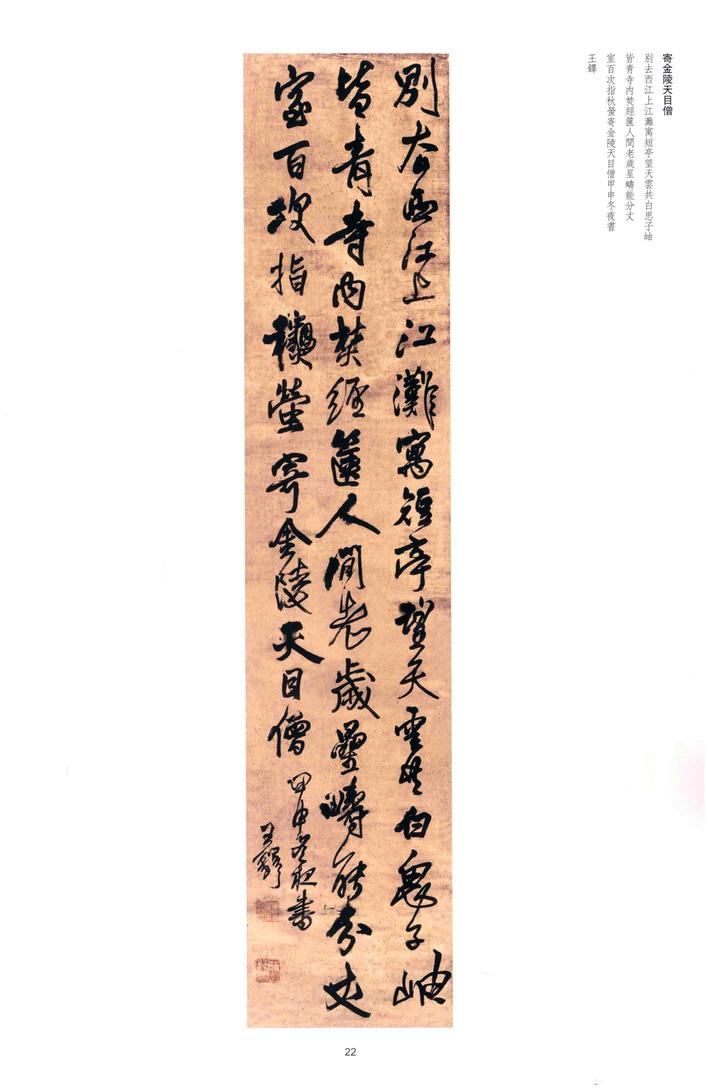 寄金陵天目僧
別去西江上江灘寓短亭望天雲共白思子岫
皆青寺内焚經篋人間老歲星疇能分丈
室百次指秋螢寄金陵天目僧甲申冬夜書
王鐸
別去西江上江灘寓短亭望天雲共白思子岫
皆青寺内焚經篋人間老歲星疇能分丈
室百次指秋螢寄金陵天目僧甲申冬夜書
王鐸
22